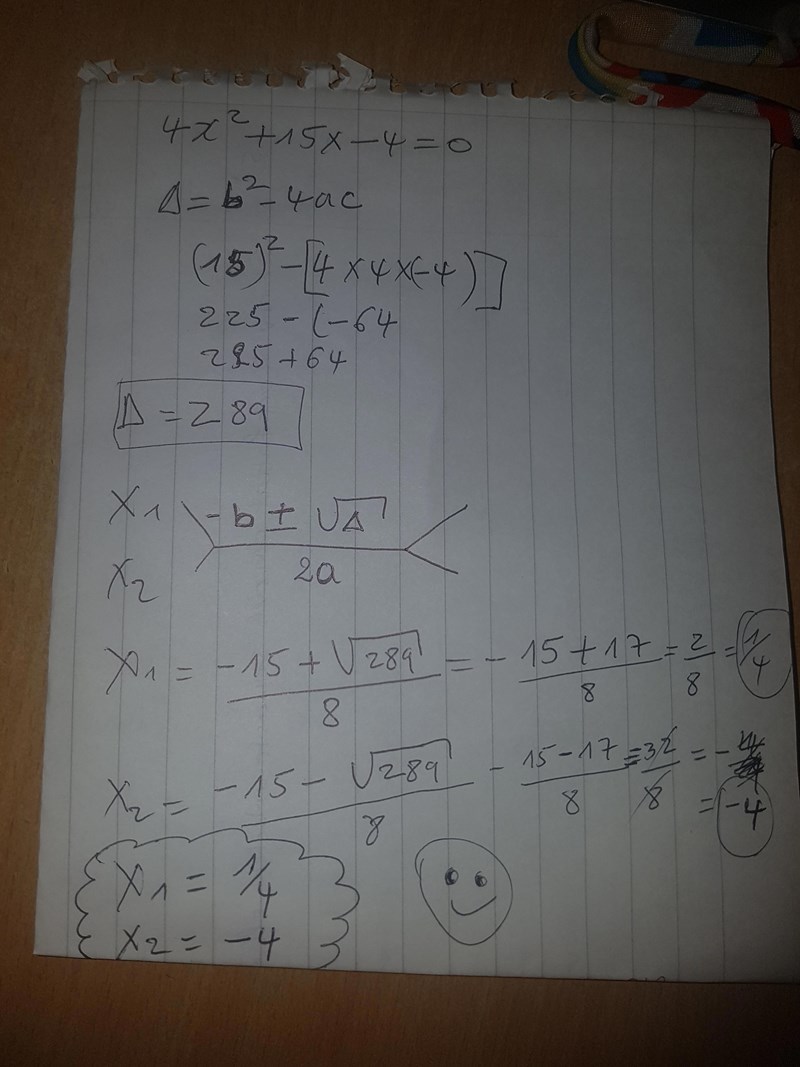 4x² + 15x - 4 = 0
Δ = b² - 4ac
(15)² - [4 × 4 × (-4)]
225 - (-64
225 + 64
Δ = 289
x1 -b ± √Δ
x2 2a
x1 = -15 + √289 / 8 = - 15 + 17 / 8 = 2/8 = 1/4
x2 = -15 - √289 / 8 - 15 - 17 / 8 = 32/8 = -
= -4
x1 = 1/4
x2 = -4